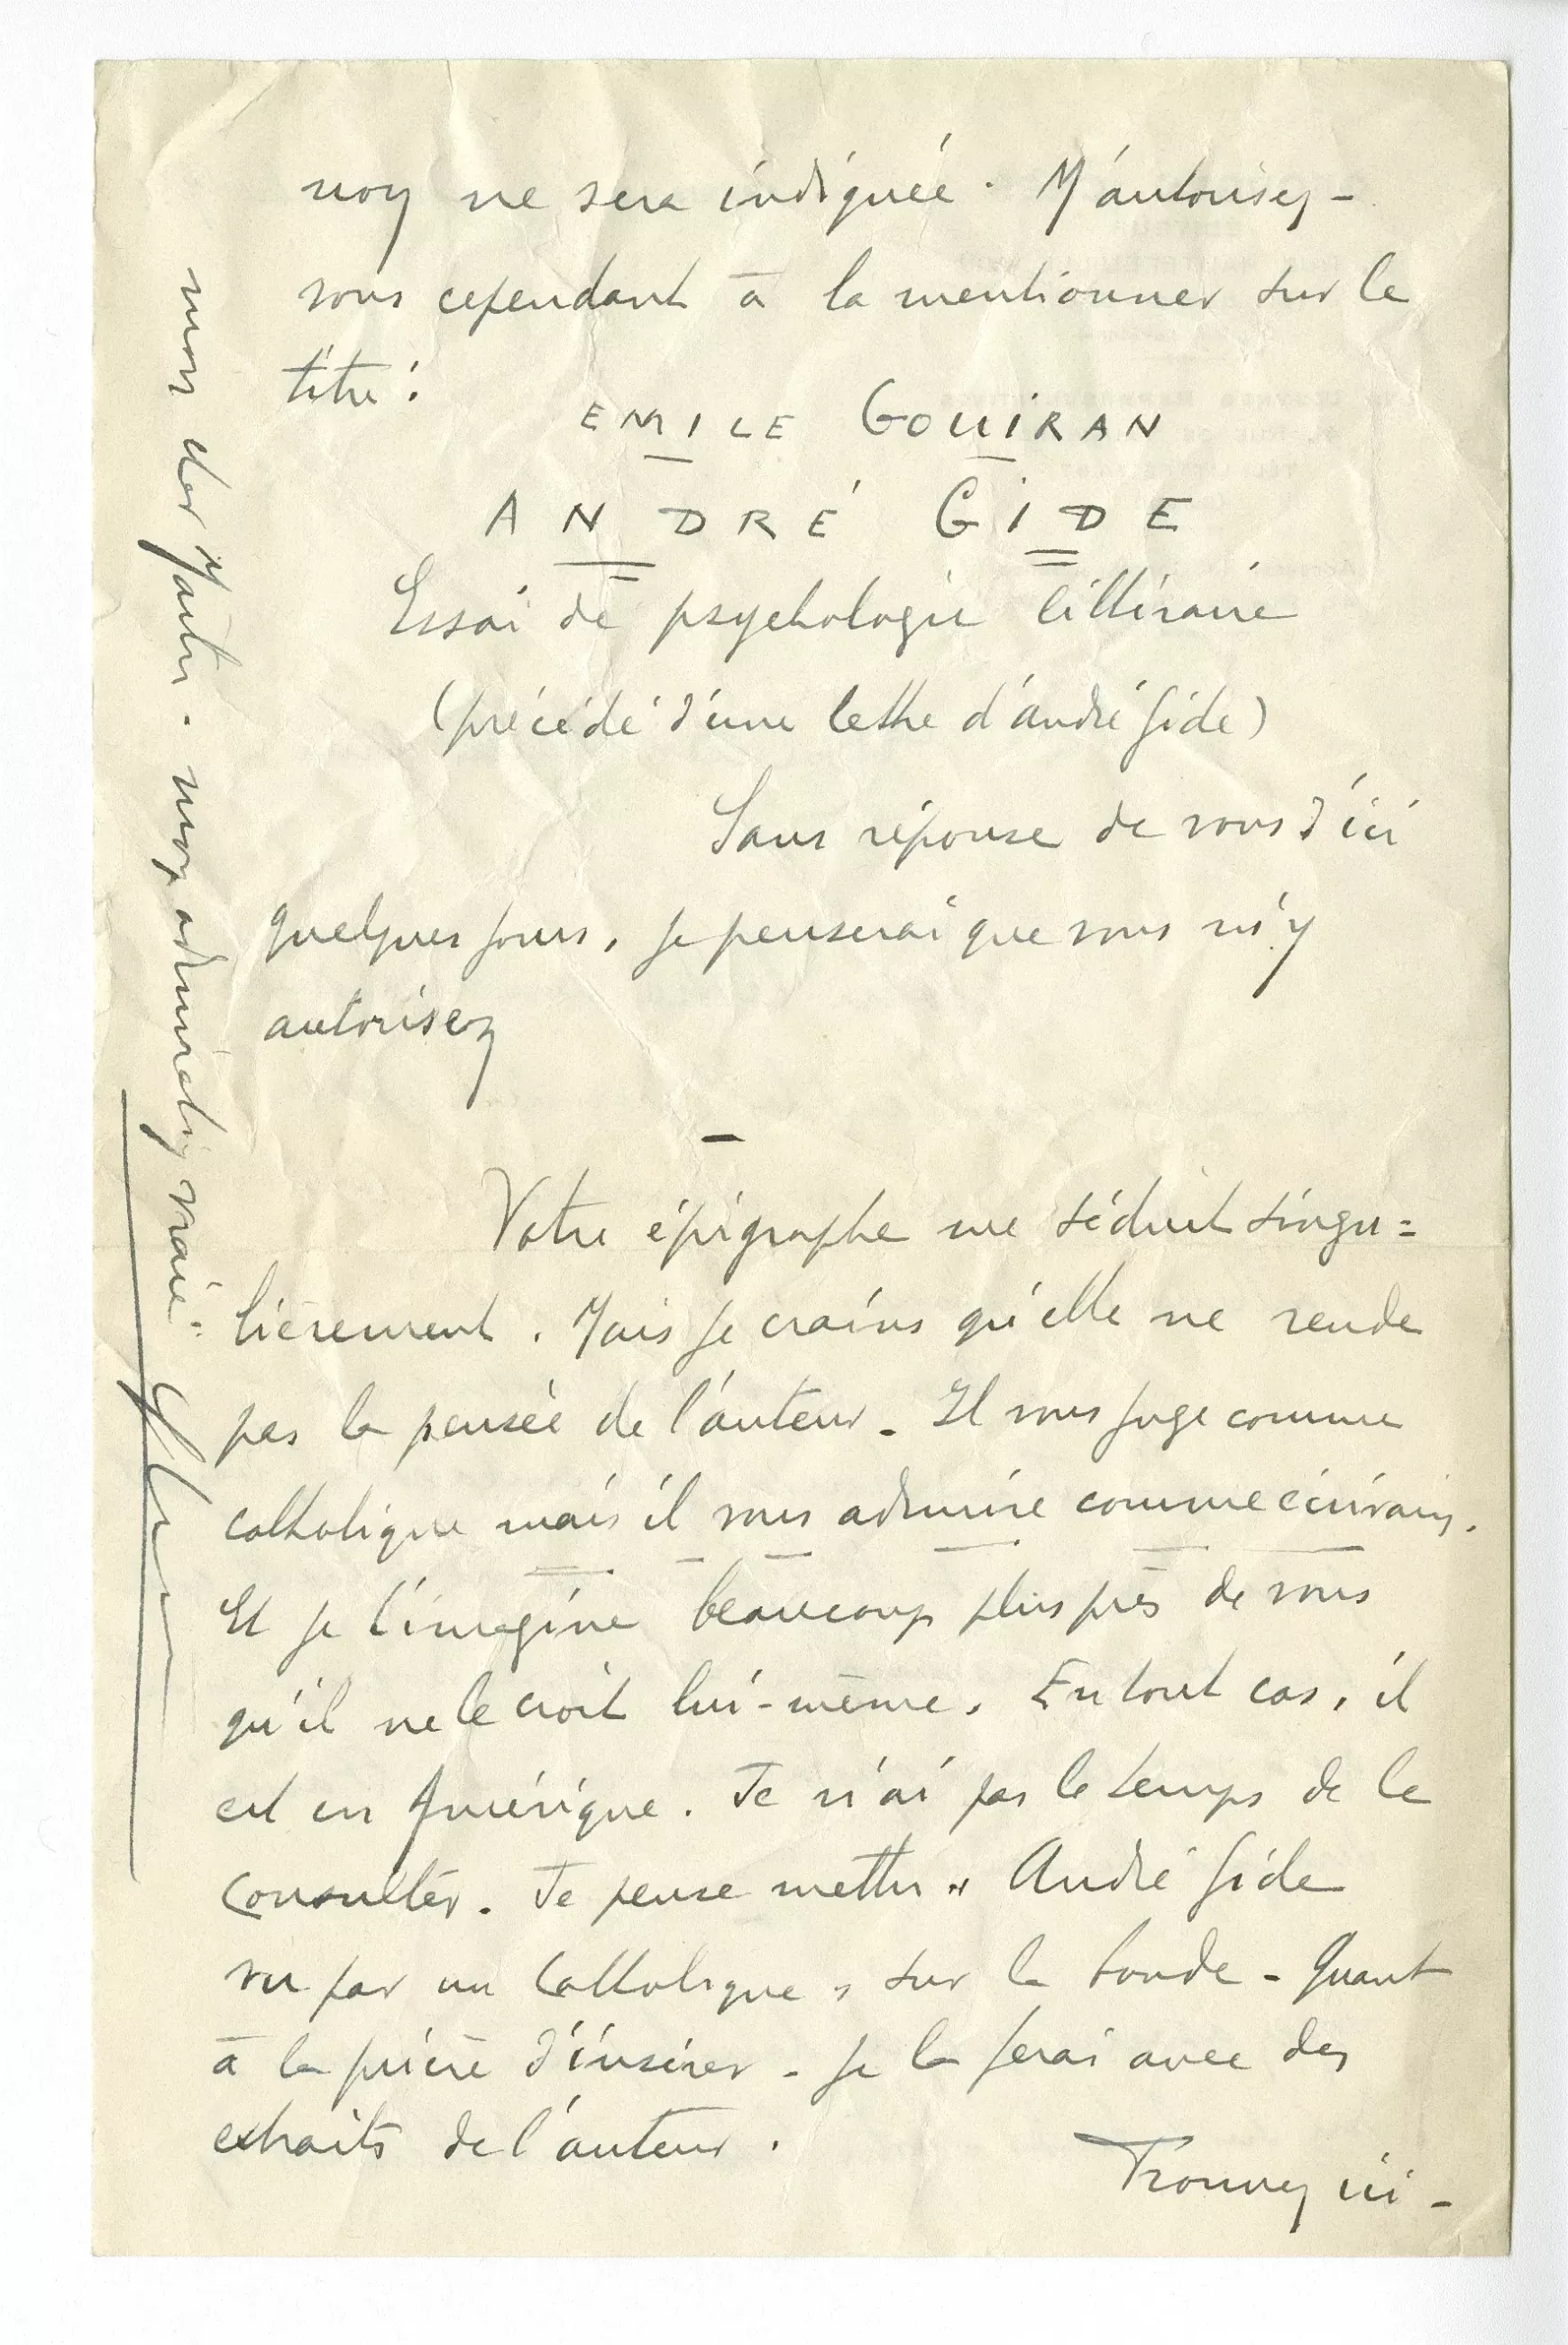 non ne sera indiquée. M'autorisez-
vous cependant à la mentionner sur le
titre :
EMILE GOUIRAN
ANDRÉ GIDE
Essai de psychologie littéraire
(précédé d'une lettre d'André Gide)
Sans réponse de vous d'ici
quelques jours, je penserai que vous m'y
autorisez
—
Votre épigraphe me séduit singu=
lièrement. Mais je crains qu'elle ne rende
pas la pensée de l'auteur. Il vous juge comme
catholique mais il vous admire comme écrivain.
Et je l'imagine beaucoup plus près de vous
qu'il ne le croit lui-même. En tout cas, il
est en Amérique. Je n'ai pas le temps de le
consulter. Je pense mettre " André Gide
vu par un Catholique " sur la bande - Quant
à la prière d'insérer - je la ferai avec des
extraits de l'auteur.
Trouvez ici -
mon cher Maître - mon admiration vraie.